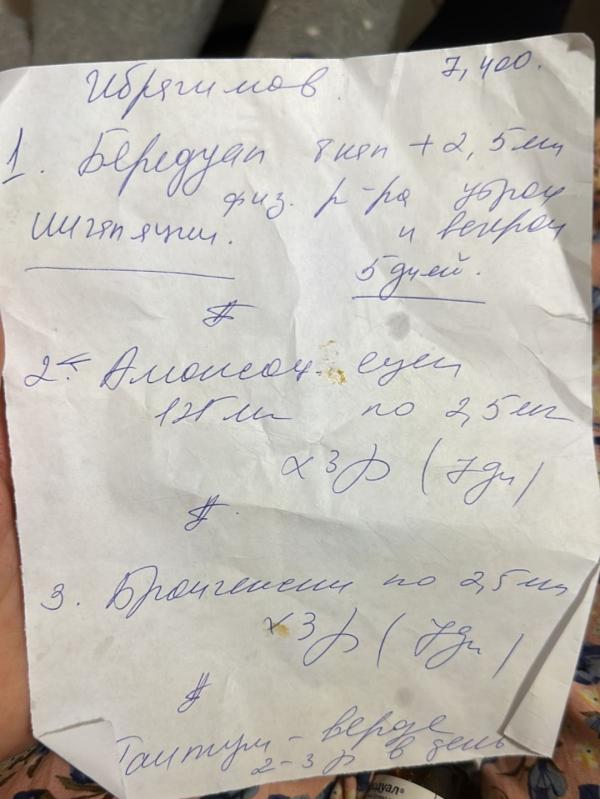 Ибрагимов 7,400.
1. Беродуал 8 кап + 2,5 мл
физ. р-ра утром
ингаляции. и вечером
5 дней.
#
2. Амоксац. сусп
125 мг по 2,5 мл
х 3 р (7 дн)
#
3. по 2,5 мл
х 3 р (7 дн)
#
Тантум-верде
2-3 р в день
дуал®